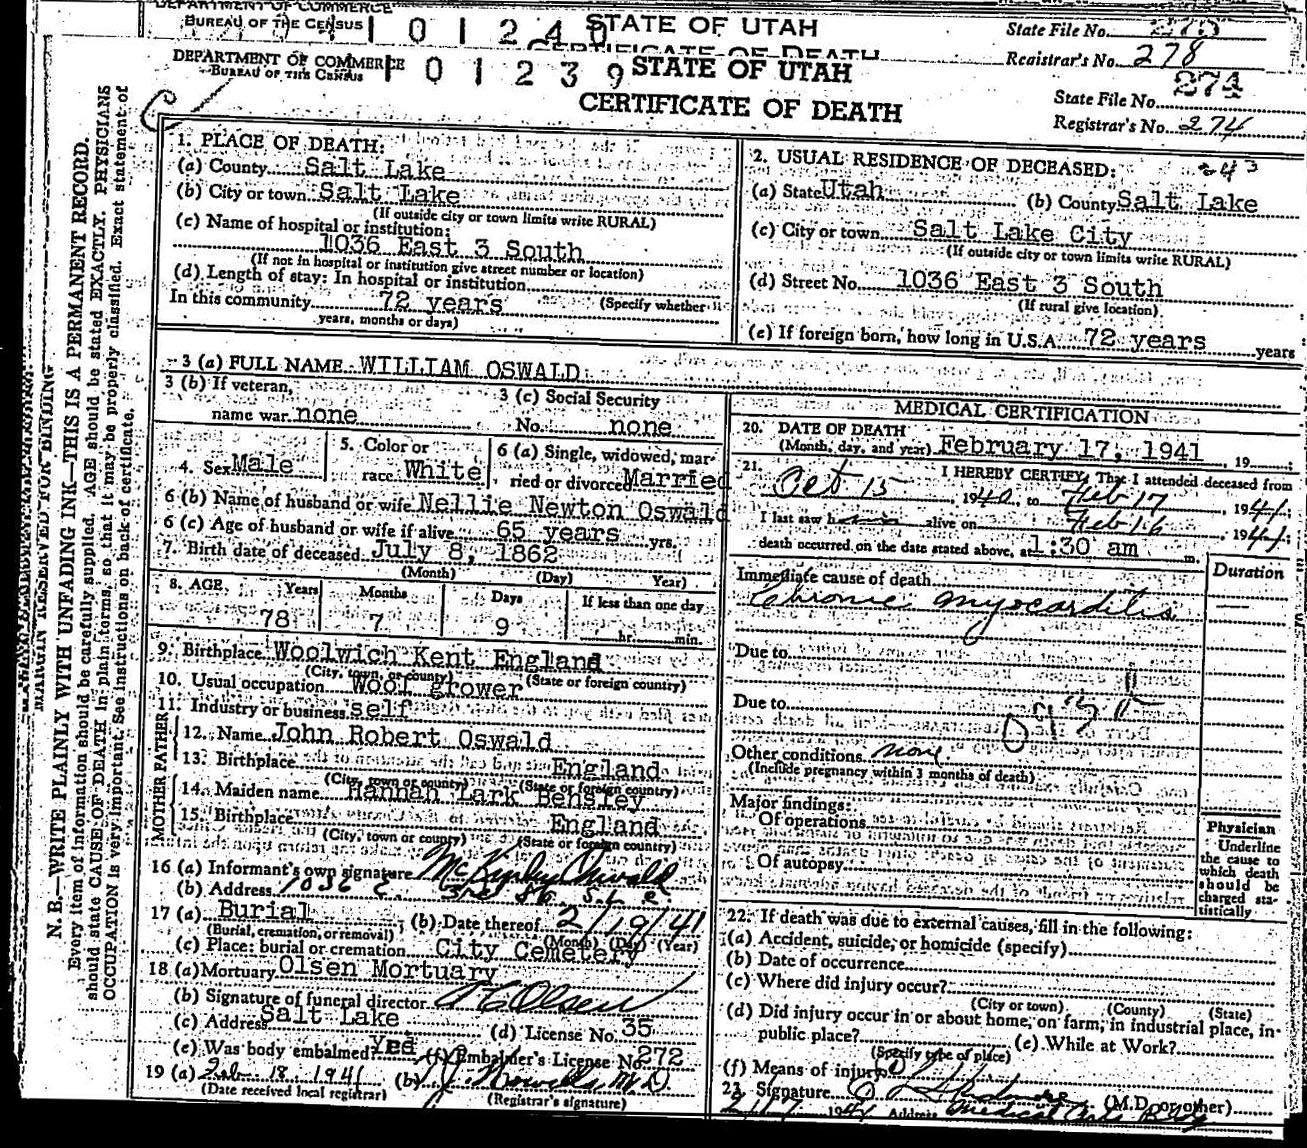 DEPARTMENT OF COMMERCE
BUREAU OF THE CENSUS
101240
STATE OF UTAH
CERTIFICATE OF DEATH
State File No.
Registrar's No. 278
DEPARTMENT OF COMMERCE
BUREAU OF THE CENSUS
101239
STATE OF UTAH
CERTIFICATE OF DEATH
State File No. 274
Registrar's No. 274
MARGIN RESERVED FOR BINDING
N. B.—WRITE PLAINLY WITH UNFADING INK—THIS IS A PERMANENT RECORD.
Every item of information should be carefully supplied. AGE should be stated EXACTLY. PHYSICIANS
should state CAUSE OF DEATH in plain terms, so that it may be properly classified. Exact statement of
OCCUPATION is very important. See instructions on back of certificate.
1. PLACE OF DEATH:
(a) County Salt Lake
(b) City or town Salt Lake
(If outside city or town limits write RURAL)
(c) Name of hospital or institution:
1036 East 3 South
(If not in hospital or institution give street number or location)
(d) Length of stay: In hospital or institution
In this community 72 years (Specify whether
years, months or days)
2. USUAL RESIDENCE OF DECEASED: 243
(a) State Utah (b) County Salt Lake
(c) City or town Salt Lake City
(If outside city or town limits write RURAL)
(d) Street No. 1036 East 3 South
(If rural give location)
(e) If foreign born, how long in U.S.A. 72 years years
3 (a) FULL NAME WILLIAM OSWALD
3 (b) If veteran,
name war none
3 (c) Social Security
No. none
4. Sex Male
5. Color or
race White
6 (a) Single, widowed, mar-
ried or divorced Married
6 (b) Name of husband or wife Nellie Newton Oswald
6 (c) Age of husband or wife if alive 65 years yrs.
7. Birth date of deceased July 8, 1862
(Month) (Day) Year)
8. AGE Years Months Days If less than one day
78 7 9 hr. min.
9. Birthplace Woolwich Kent England
(City, town, or county) (State or foreign country)
10. Usual occupation Wool grower
11. Industry or business self
FATHER
12. Name John Robert Oswald
13. Birthplace England
(City, town or county) (State or foreign country)
MOTHER
14. Maiden name Hannah Lark Bensley
15. Birthplace England
(City, town or county) (State or foreign country)
16 (a) Informant's own signature McKinley Oswald
(b) Address 1036 E. 3rd So. S.L.C.
17 (a) Burial (b) Date thereof 2/19/41
(Burial, cremation, or removal) (Month) (Day) (Year)
(c) Place: burial or cremation City Cemetery
18 (a) Mortuary Olsen Mortuary
(b) Signature of funeral director Olsen
(c) Address Salt Lake (d) License No. 35
(e) Was body embalmed? Yes (f) Embalmer's License No. 272
19 (a) Feb. 18, 1941 (b) M D
(Date received local registrar) (Registrar's signature)
MEDICAL CERTIFICATION
20. DATE OF DEATH
(Month, day, and year) February 17, 1941, 19
21. I HEREBY CERTIFY, That I attended deceased from
Oct 15, 1940 to Feb 17, 1941.
I last saw him alive on Feb 16, 1941.
death occurred on the date stated above, at 1:30 am m.
Duration
Immediate cause of death
Chronic myocarditis
Due to
Due to
Other conditions none
(Include pregnancy within 3 months of death)
Major findings:
Of operations
Of autopsy
Physician
Underline
the cause to
which death
should be
charged sta-
tistically
22. If death was due to external causes, fill in the following:
(a) Accident, suicide, or homicide (specify)
(b) Date of occurrence
(c) Where did injury occur?
(City or town) (County) (State)
(d) Did injury occur in or about home, on farm, in industrial place, in
public place? (e) While at Work?
(Specify type of place)
(f) Means of injury
23. Signature (M.D. or other)
2/17 1941 Address Medical Arts Bldg